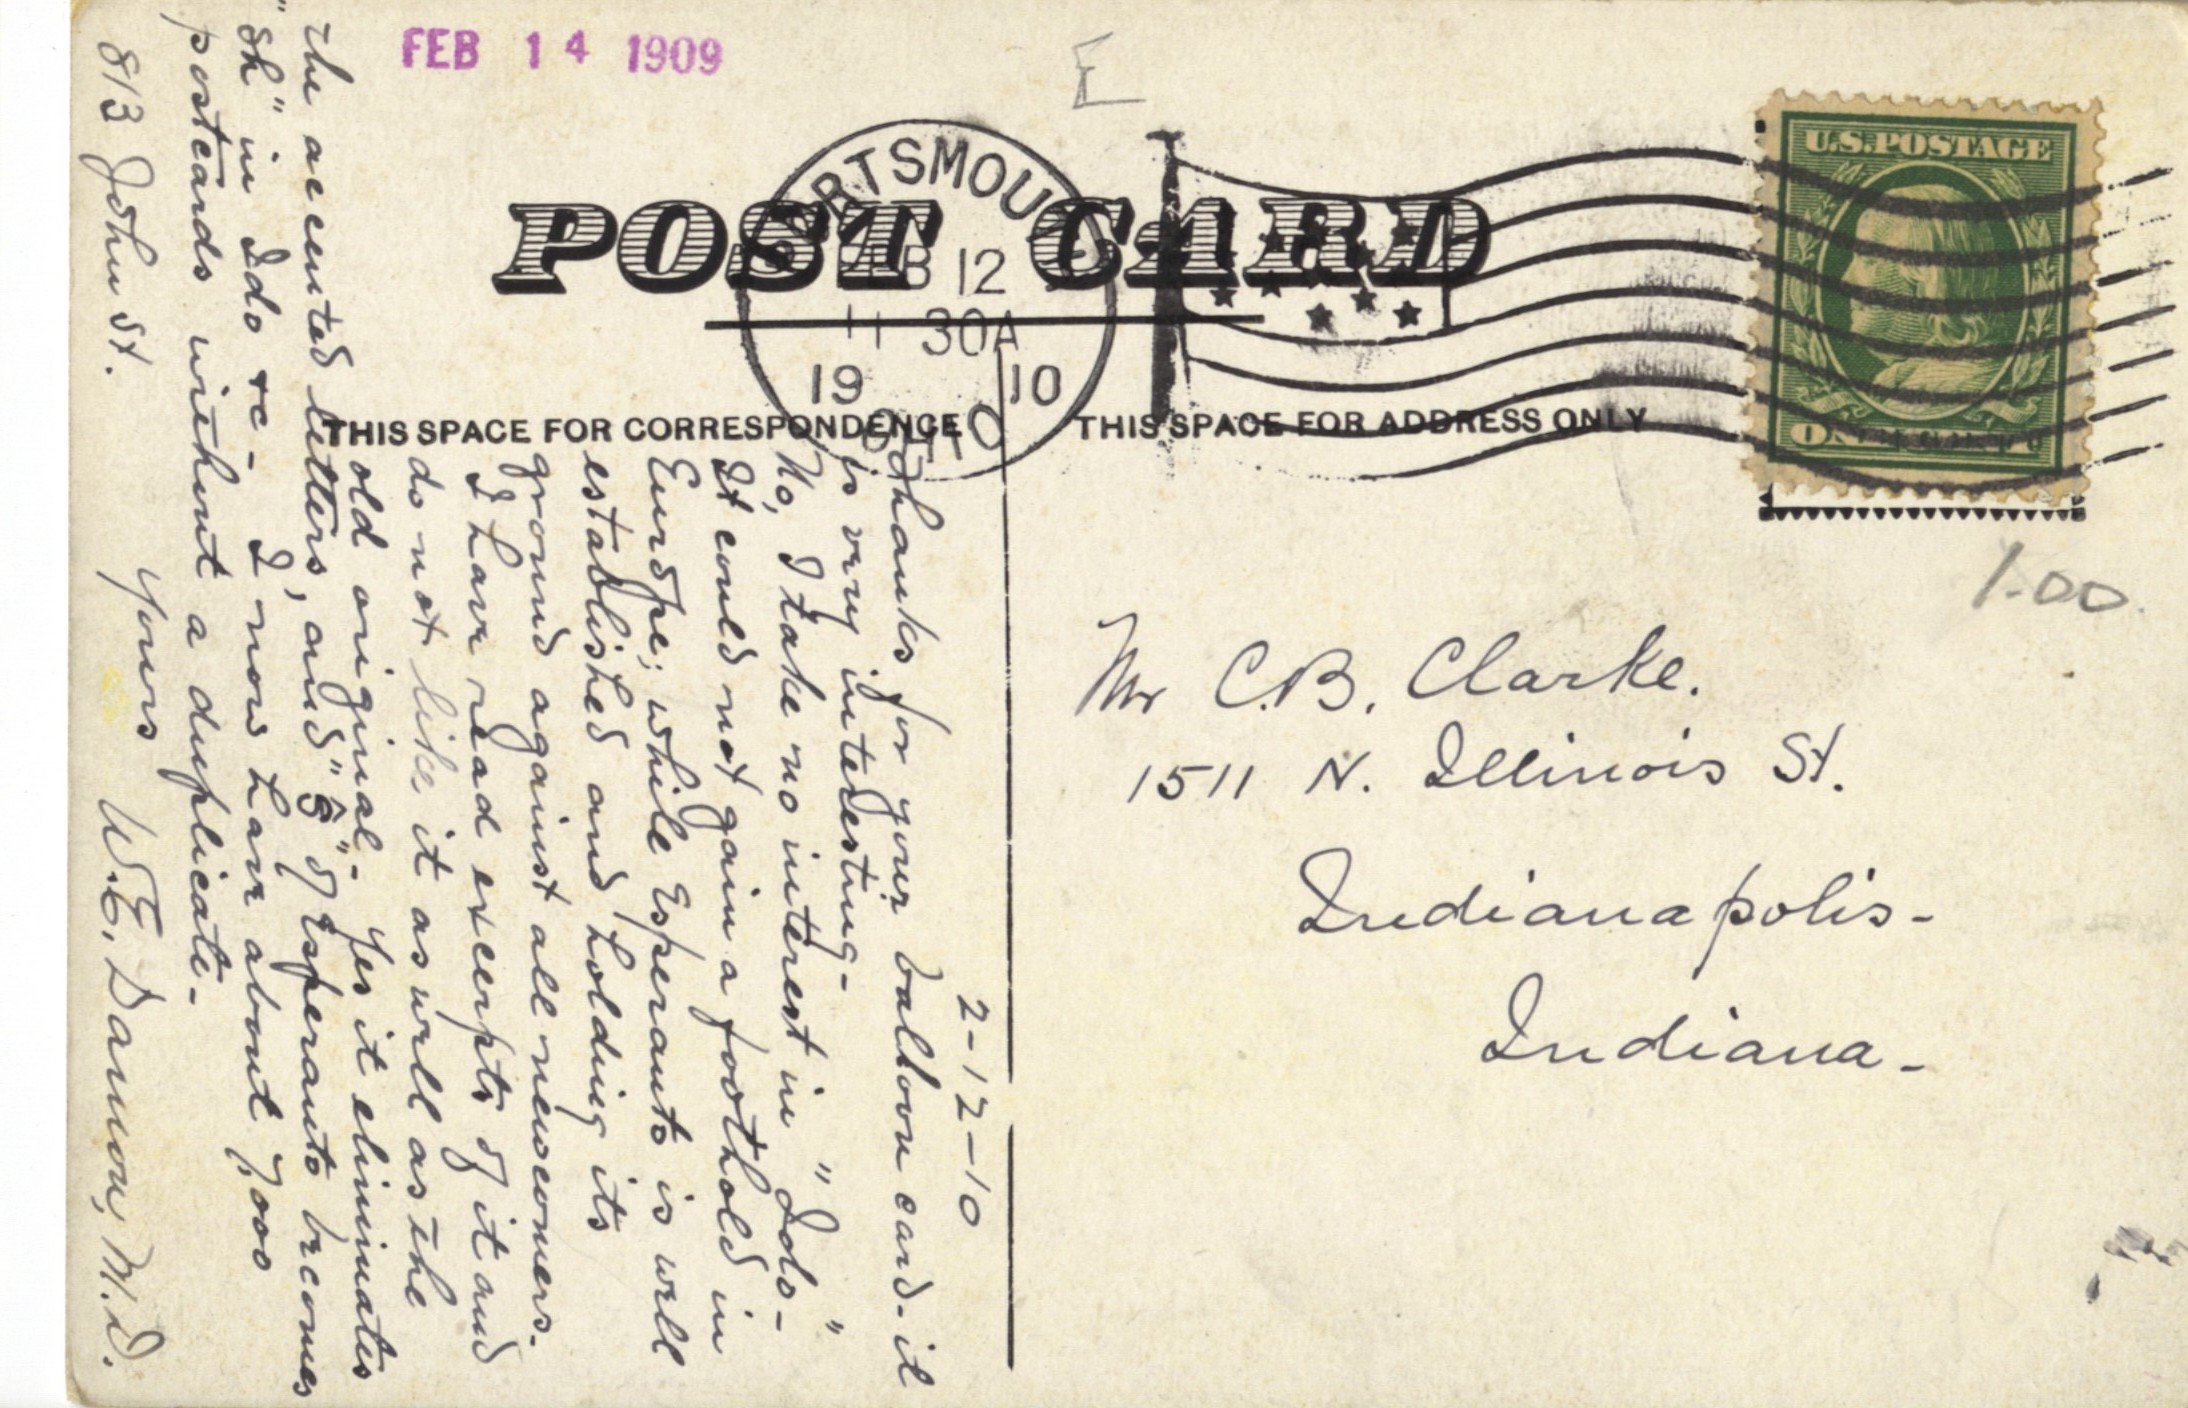 FEB 14 1909
E
PORTSMOUTH
FEB 12
11 30A
1910
OHIO
U.S. POSTAGE
POST CARD
THIS SPACE FOR CORRESPONDENCE
THIS SPACE FOR ADDRESS ONLY
1.00
Mr C.B. Clarke.
1511 N. Illinois St.
Indianapolis-
Indiana-
2-12-10
Thanks for your balloon card- it
is very interesting-
No, I take no interest in "Ido-"
It could not gain a foothold in
Europe; while Esperanto is well
established and holding its
ground against all newcomers.
I have read excerpts of it and
do not like it as well as the
old original- Yes it eliminates
the accented letters, and "ŝ" of Esperanto becomes
"sh" in Ido &c- I now have about 7,000
postcards without a duplicate-
Yours W.E. Damon, M.D.
813 John St.